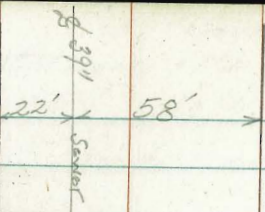 ₵ 39"
22' 58'
Sewer